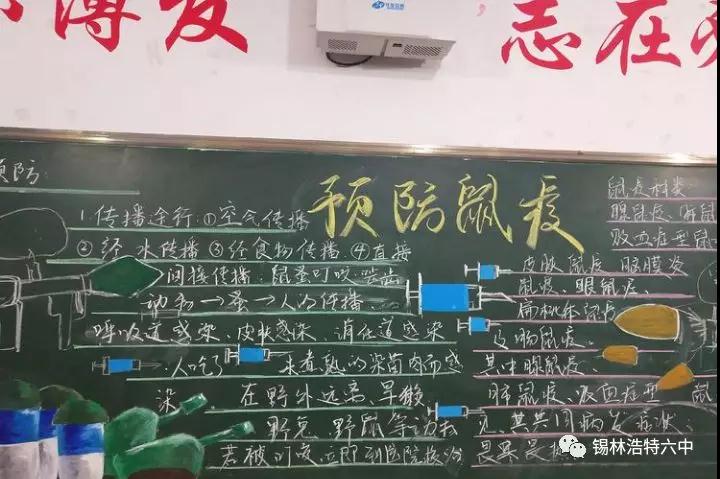 博发
志在
预防:
预防鼠疫
1.传播途行:①空气传播
②经水传播③经食物传播.④直接
间接传播:鼠蚤叮咬
动物→蚤→人的传播
呼吸道感染、皮肤感染、消化道感染
人吃了未煮熟的染菌肉而感
染 在野外远离、旱獭
野兔、野鼠等动物
若被叮咬,立即到医院
鼠疫种类
腺鼠疫、肺鼠
败血症型鼠
皮肤鼠疫、脑膜炎
鼠疫、眼鼠疫、
扁桃体鼠疫
皮肤鼠疫.
其中腺鼠疫.
肺鼠疫、败血症型 鼠
见,其共同病发症状:
畏寒
锡林浩特六中